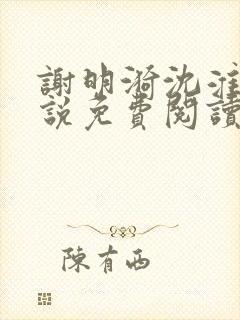 謝明漪沈淮
說免費閱讀
陳有西